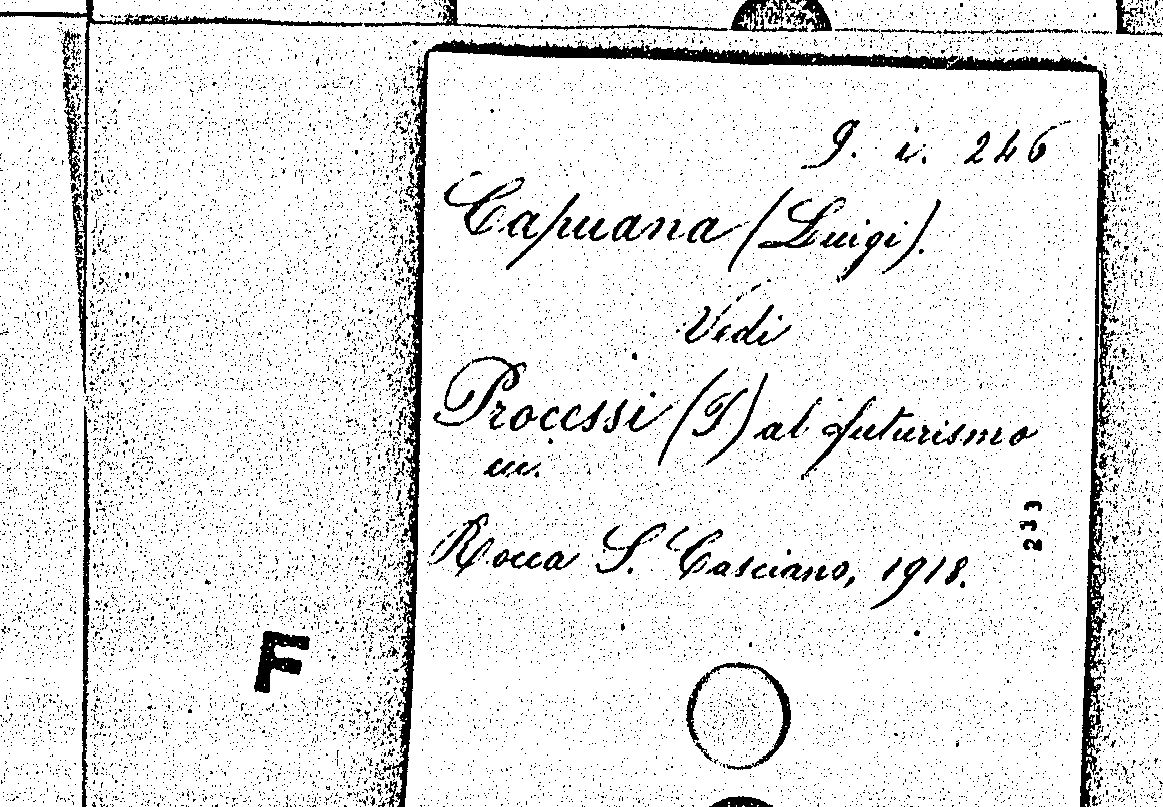 g. i. 246
Capuana (Luigi).
Vedi
Processi (I) al futurismo
Rocca S. Casciano, 1918.
233
F